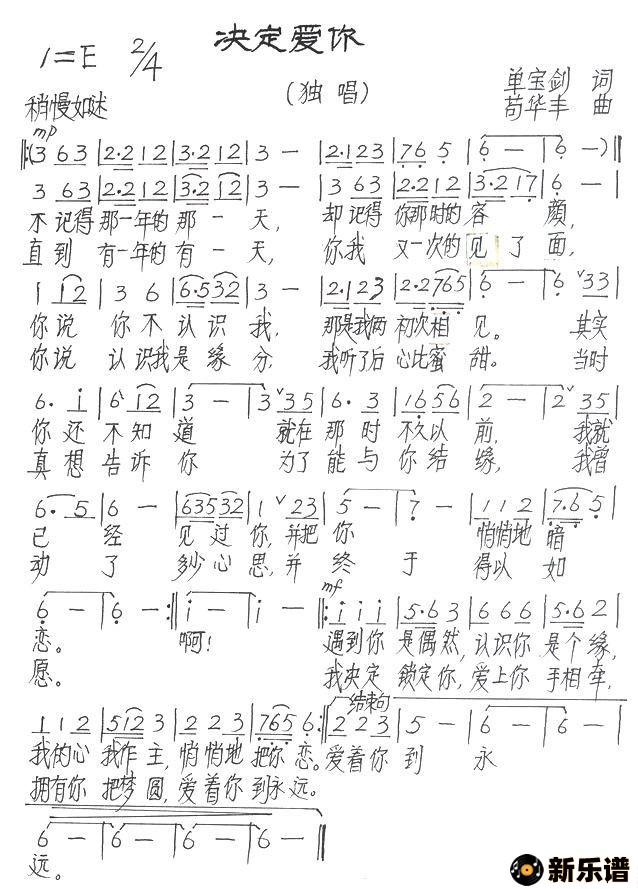 决定爱你
1=E 2/4
（独唱）
稍慢如述
单宝剑 词
苟华丰 曲
mp
‖:(3 63|2·2 12|3·2 12|3 —|2·1 23|76 5|6 —|6 —)‖
3 63|2·2 12|3·2 12|3 —|3 63|2·2 12|3·2 17|6 —|
不记得 那一年的 那一天， 却记得 你那时的容颜，
直到 有一年的 有一天， 你我 又一次的见了面，
1 12|3 6|6·5 32|3 —|2·1 23|2·2 765|6 —|6 ˅33|
你说 你不认识我， 那是我俩 初次相见。 其实
你说 认识我是缘分， 我听了后 心比蜜甜。 当时
6· i|6 12|3 —|3 ˅35|6· 3|16 56|2 —|2 ˅35|
你还不知道 就在那时不久以前， 我就
真想告诉你 为了能与你结缘， 我曾
6· 5|6 —|635 32|1 ˅23|5 —|7 —|1 12|7·6 5|
已经见过你，并把你 悄悄地暗
动了多少心思，并终于 得以如
mf
6 —|6 —:‖i —|i —‖:i i i|5·6 3|6 6 6|5·6 2|
恋。 啊！ 遇到你是偶然，认识你是个缘，
愿。 我决定锁定你，爱上你手相牵，
结束句
1 1 2|512 3|2 2 3|765 6:‖2 2 3|5 —|6 —|6 —|
我的心我作主，悄悄地把你恋。爱着你到永
拥有你把梦圆，爱着你到永远。
6 —|6 —|6 —|6 —‖
远。
新乐谱